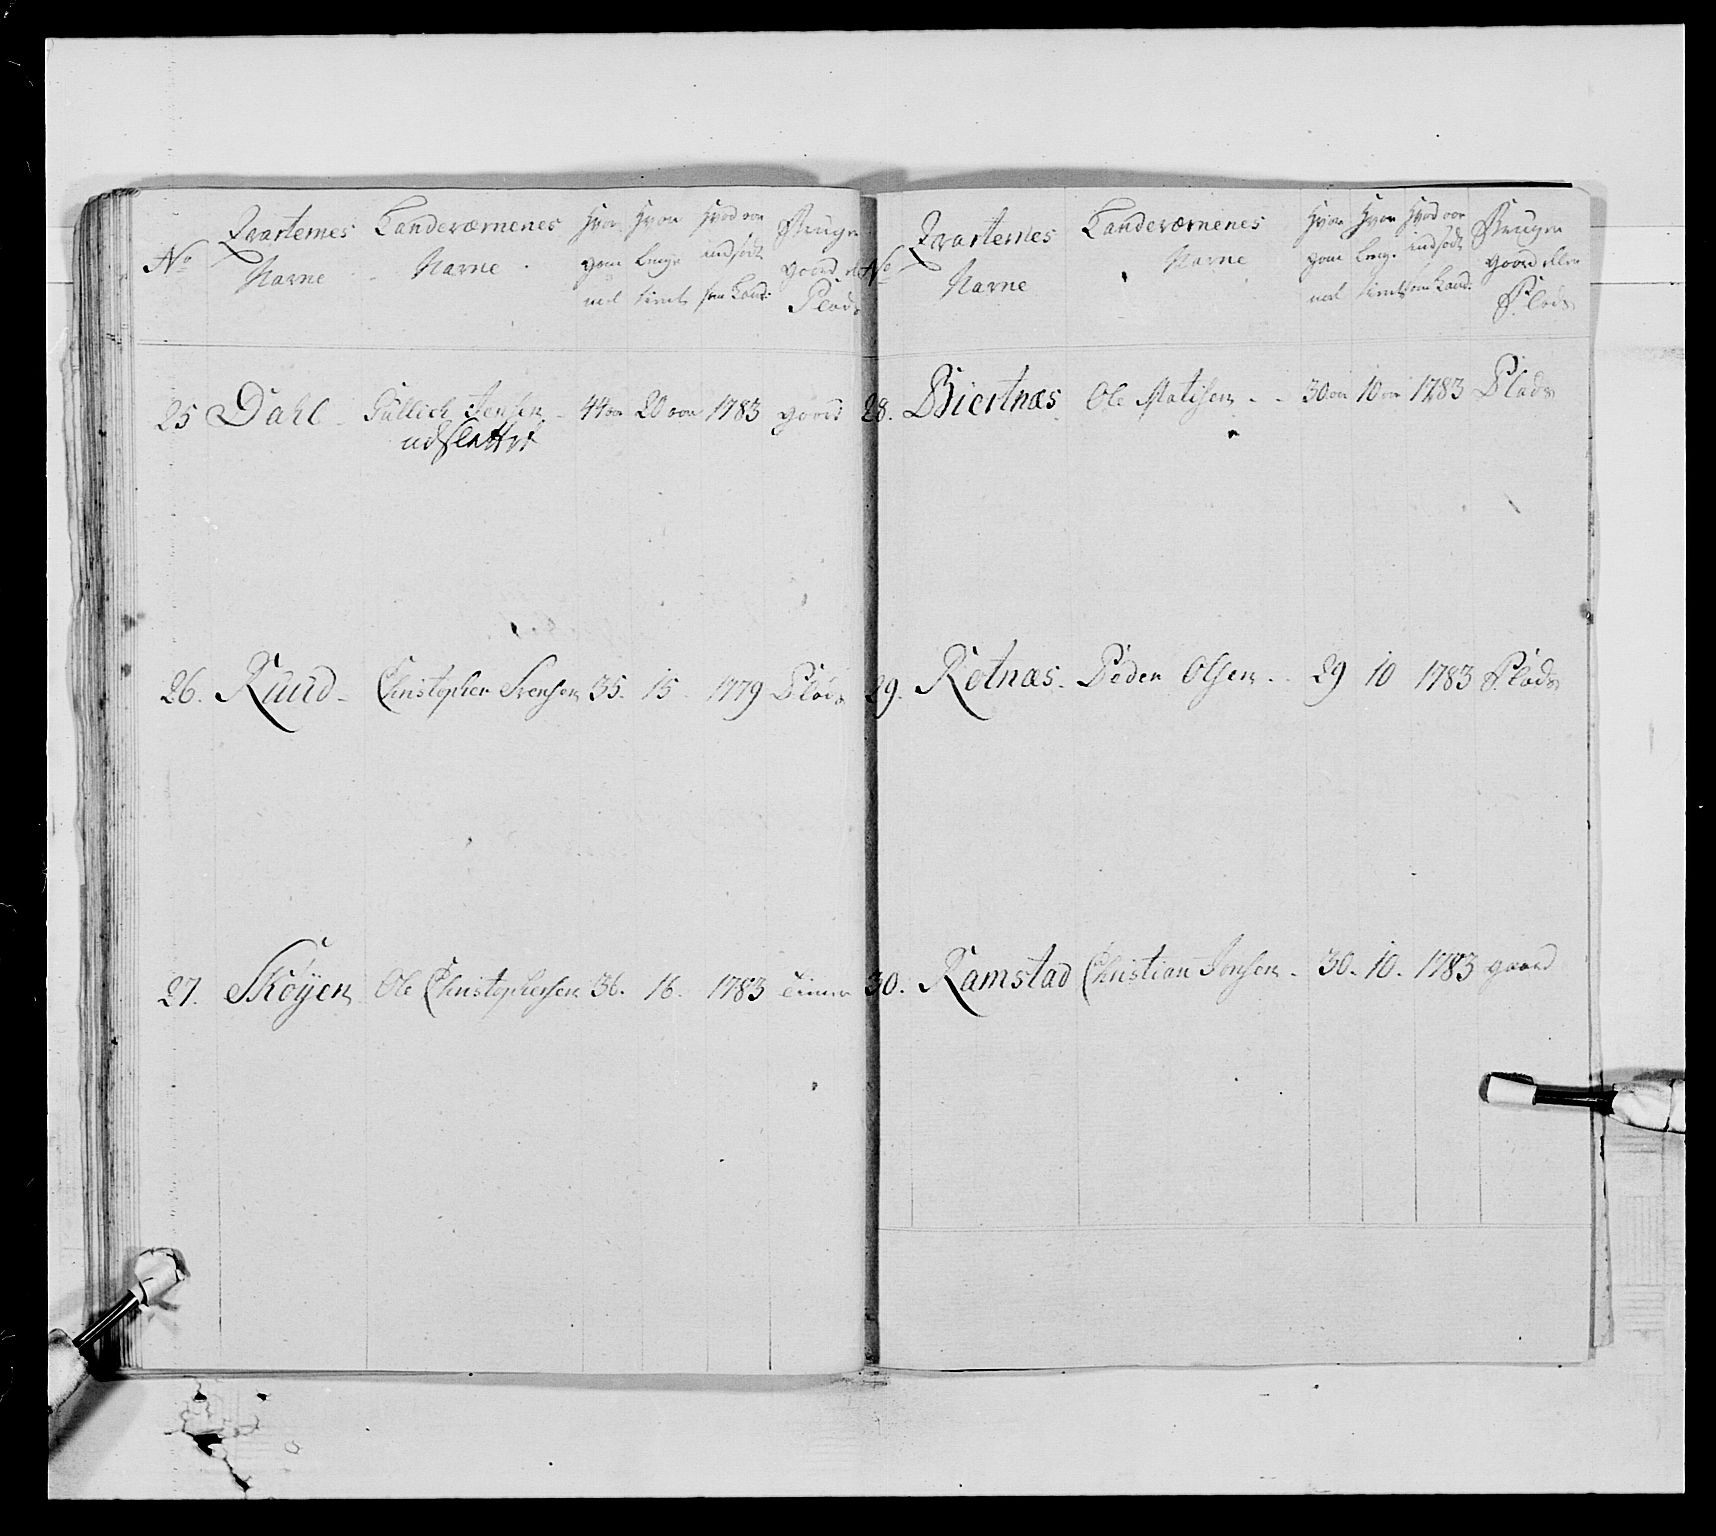 No
Qvarternes Navne
Landeværnenes Navne
Hvor gam mel
Hvor lenge tient
Hvad aar indsadt som Land:
Bruger gaard el Plads
25 Dahl Gullich Jensen 44 aar 20 aar 1783 gaard
udslettet
26. Ruud Christopher Svensen 35. 15 1779 Plads
27. Skøyen Ole Christophersen 36. 16. 1783
No
Qvarternes Navne
Landeværnenes Navne
Hvor gam mel
Hvor leng. tient
Hvad aar indsadt som Land:
Bruger gaard eller Plads
28. Biertnæs Ole Matisen 30 aar 10 aar 1783 Plads
29. Rotnæs Peder Olsen 29 10 1783 Plads
30. Ramstad Christian Jensen 30. 10. 1783 gaard